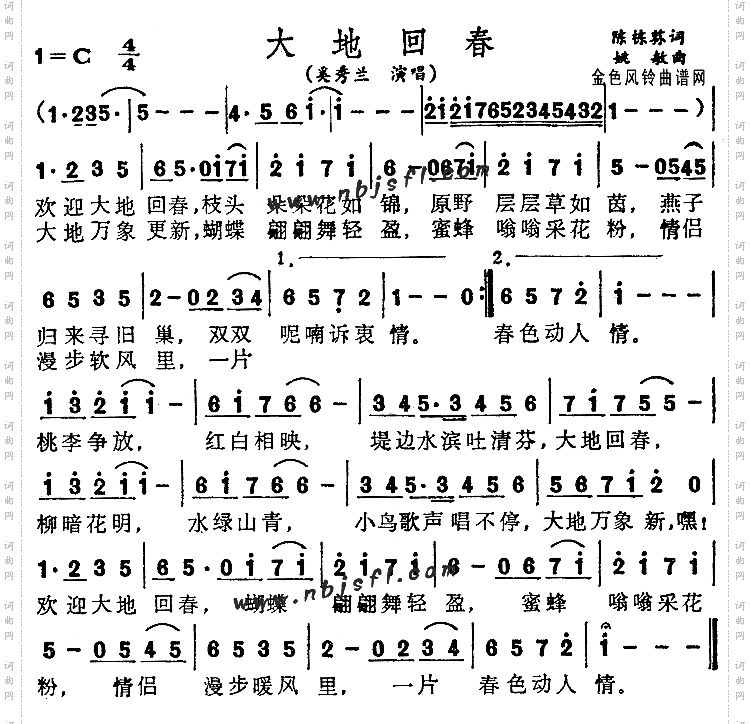 大地回春
1=C 4/4
陈栋荪词
(奚秀兰 演唱)
姚敏曲
金色风铃曲谱网
(1·235· | 5--- | 4·56i· | i--- | 2i2i7652345432 | 1---)
1·235 | 65·0i7i | 2i7i | 6-067i | 2i7i | 5-0545
欢迎大地 回春,枝头 朵朵花如 锦, 原野 层层草如 茵, 燕子
大地万象 更新,蝴蝶 翩翩舞轻 盈, 蜜蜂 嗡嗡采花 粉, 情侣
1. 2.
6535 | 2-0234 | 6572 | 1--0 :| 6572 | i---
归来寻旧 巢, 双双 呢喃诉衷 情。 春色动人 情。
漫步软风 里, 一片
i32ii- | 6i766- | 345·33456 | 7i755-
桃李争放, 红白相映, 堤边水滨吐清芬,大地回春,
i32ii- | 6i766- | 345·33456 | 567i20
柳暗花明, 水绿山青, 小鸟歌声唱不停,大地万象新,嘿!
1·235 | 65·0i7i | 2i7i | 6-067i | 2i7i
欢迎大地 回春, 蝴蝶 翩翩舞轻 盈, 蜜蜂 嗡嗡采花
5-0545 | 6535 | 2-0234 | 6572 | i--- ‖
粉, 情侣 漫步暖风 里, 一片 春色动人 情。
www.nbjsfl.com
www.nbjsfl.com
词曲网